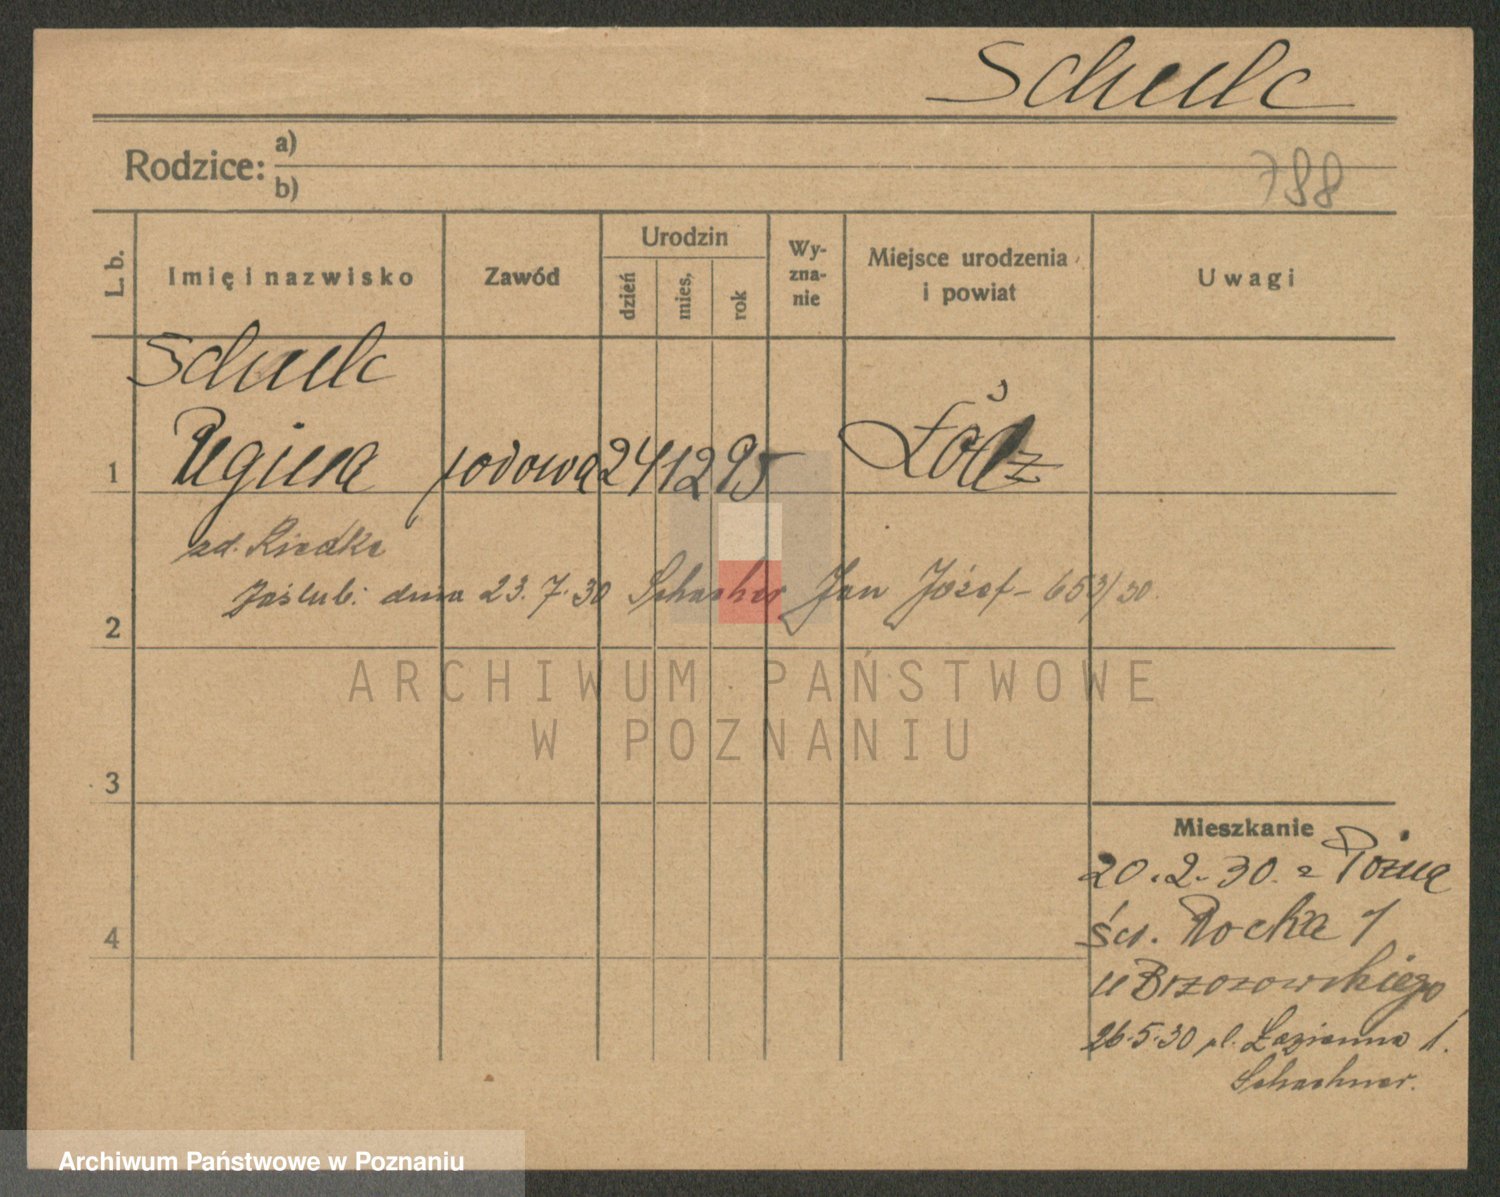 Schulc
Rodzice: a)
b)
788
L. b.
Imię i nazwisko
Zawód
Urodzin
dzień
mies.
rok
Wy-
zna-
nie
Miejsce urodzenia
i powiat
Uwagi
Schulc
1 Regina rodowa 24 12 95 Łódz
zd. Riedke
Zaślub. dnia 23.7.30 Jan Józef - 653/30.
2
3
4
Mieszkanie
20.2.30. z Pozna
św. Rocha 1
u Brzozowskiego
26.5.30 pl. Łazienna 1.
Schachner.
ARCHIWUM PAŃSTWOWE
W POZNANIU
Archiwum Państwowe w Poznaniu